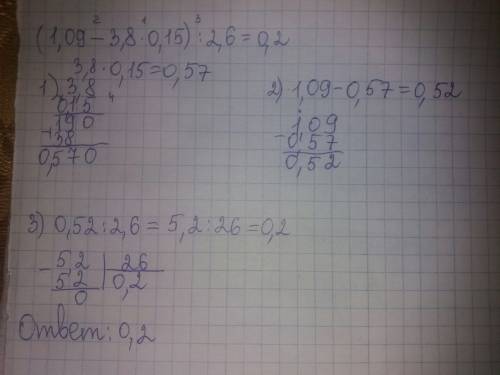 2 1 3
(1,09 – 3,8 · 0,15) : 2,6 = 0,2
3,8 · 0,15 = 0,57
1) 3,8
0,15
190
+38
0,570
2) 1,09 – 0,57 = 0,52
1,09
– 0,57
0,52
3) 0,52 : 2,6 = 5,2 : 26 = 0,2
– 5,2 | 26
5,2 | 0,2
0
Ответ: 0,2